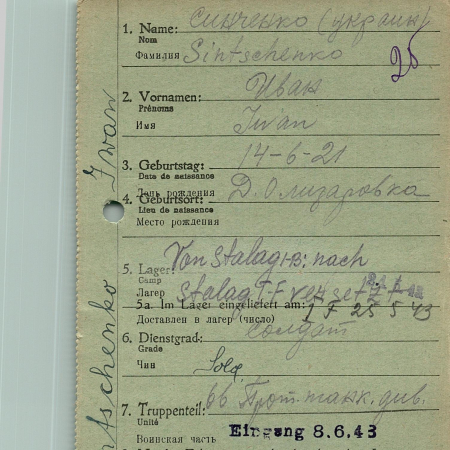 Синченко (украин)
1. Name:
Nom
Фамилия Sintschenko
25
Иван
2. Vornamen:
Prénoms
Имя Iwan
3. Geburtstag: 14-6-21
Date de naissance
День рождения Д. Олизаровка
4. Geburtsort:
Lieu de naissance
Место рождения
5. Lager: Von Stalag I-B: nach
Camp
Лагерь Stalag I-F
5a. Im Lager eingeliefert am: I F 25 5 43
Доставлен в лагерь (число)
6. Dienstgrad: солдат
Grade
Чин Sold
7. Truppenteil: 66 Прот. танк. див.
Unité
Воинская часть Eingang 8.6.43
Iwan
tschenko